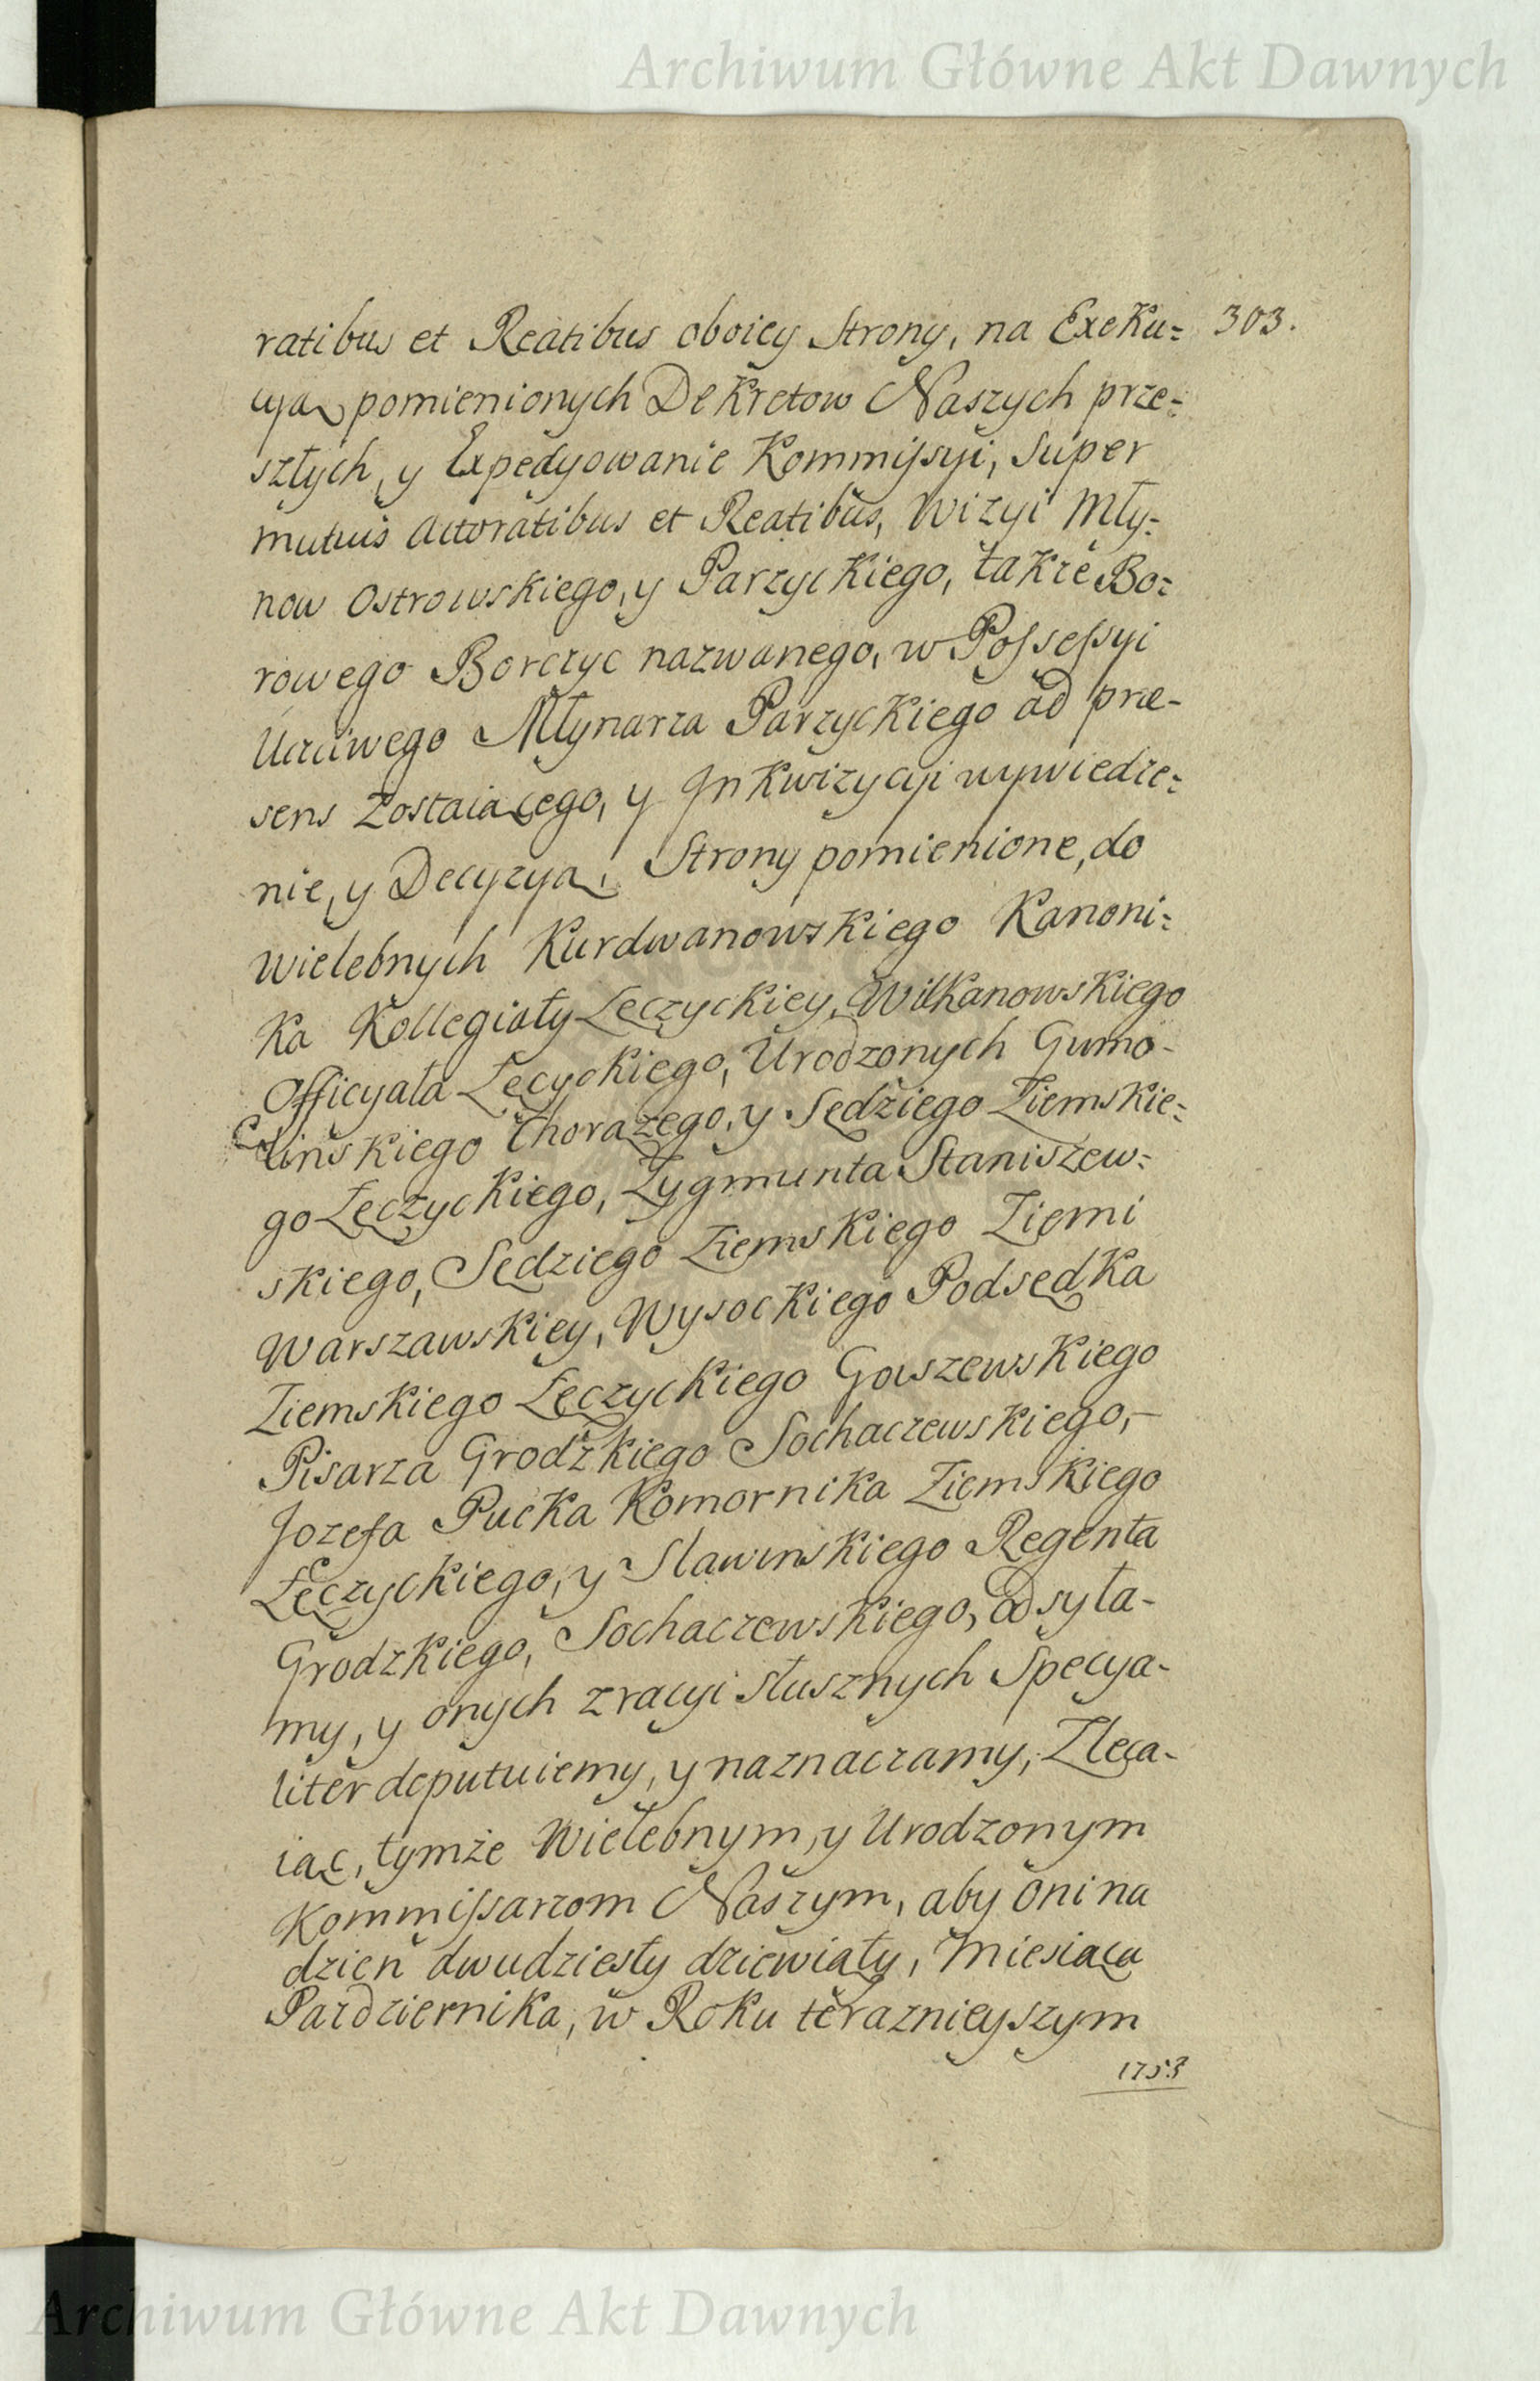 Archiwum Główne Akt Dawnych
303.
ratibus et Reatibus oboiey Strony, na Exeku=
cyą pomienionych Dekretow Naszych prze=
szłych, y Expedyowanie Kommissyi, super
mutuis Actoratibus et Reatibus, Wizyi Mły=
now Ostrowskiego, y Parzyckiego, także Bo=
rowego Borczyc nazwanego, w Possessyi
Uczciwego Młynarza Parzyckiego ad præ-
sens zostaiącego, y Inkwizycyi wywiedze=
nie, y Decyzyą, Strony pomienione, do
Wielebnych Kurdwanowskiego Kanoni=
ka Kollegiaty Łęczyckiey, Wilkanowskiego
Officyała Łęcyckiego, Urodzonych Gumo-
linskiego Chorążego, y Sędziego Ziemskie=
go Łęczyckiego, Zygmunta Staniszew=
skiego, Sędziego Ziemskiego Ziemi
Warszawskiey, Wysockiego Podsędka
Ziemskiego Łęczyckiego Gaszewskiego
Pisarza Grodzkiego Sochaczewskiego,-
Jozefa Pucka Komornika Ziemskiego
Łęczyckiego, y Slawinskiego Regenta
Grodzkiego, Sochaczewskiego, odsyła-
my, y onych z racyi słusznych Specya-
liter deputuiemy, y naznaczamy, Zleca-
iąc, tymże Wielebnym, y Urodzonym
Kommissarzom Naszym, aby oni na
dzień dwudziesty dziewiąty, Miesiąca
Pazdziernika, w Roku teraznieyszym
1753
Archiwum Główne Akt Dawnych